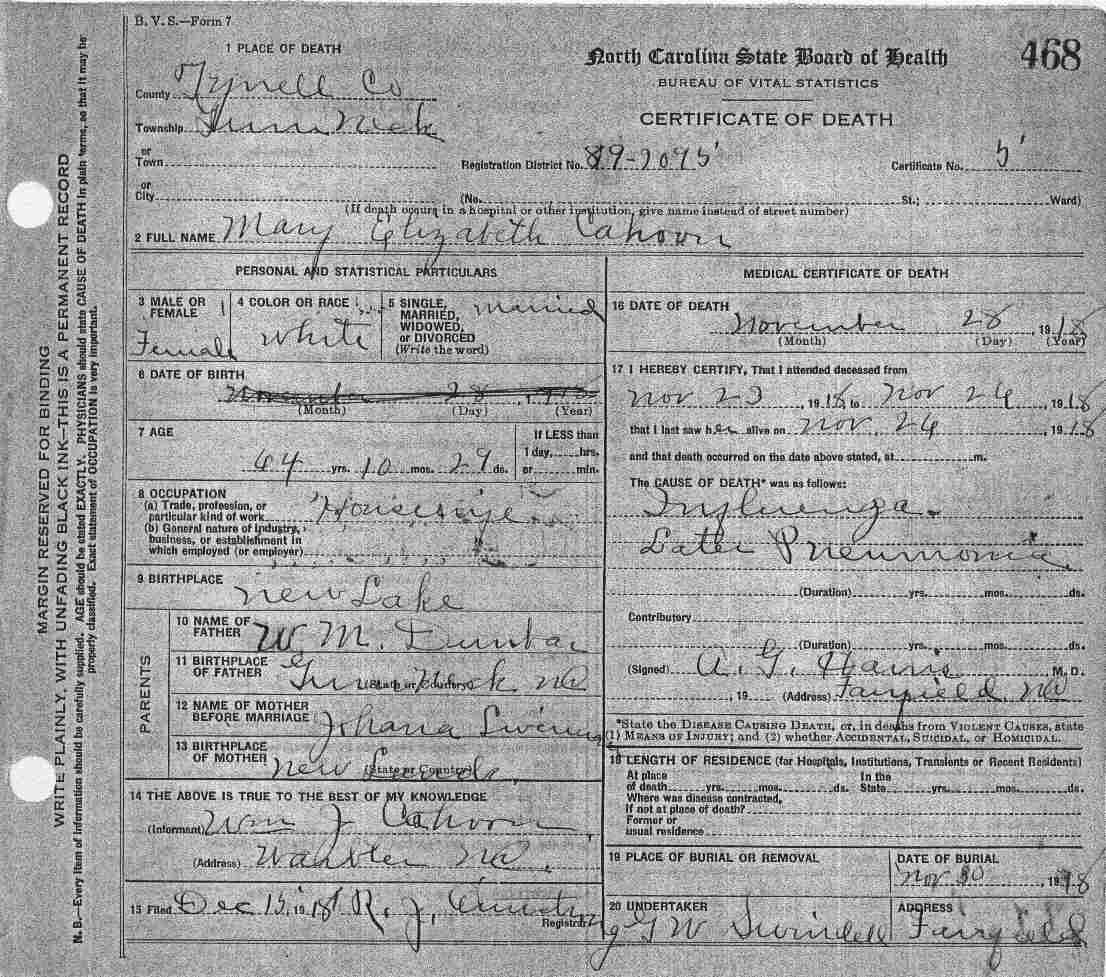 B. V. S.—Form 7
North Carolina State Board of Health
468
BUREAU OF VITAL STATISTICS
CERTIFICATE OF DEATH
MARGIN RESERVED FOR BINDING
WRITE PLAINLY, WITH UNFADING BLACK INK—THIS IS A PERMANENT RECORD
N. B.—Every item of information should be carefully supplied. AGE should be stated EXACTLY. PHYSICIANS should state CAUSE OF DEATH in plain terms, so that it may be
properly classified. Exact statement of OCCUPATION is very important.
1 PLACE OF DEATH
County Tyrrell Co
Township Gum Neck
or
Town
Registration District No. 89-2095
Certificate No. 5
or
City (No. St.; Ward)
(If death occurs in a hospital or other institution, give name instead of street number)
2 FULL NAME Mary Elizabeth Cahoon
PERSONAL AND STATISTICAL PARTICULARS
3 MALE OR FEMALE
Female
4 COLOR OR RACE
White
5 SINGLE, MARRIED, WIDOWED, or DIVORCED
(Write the word)
married
6 DATE OF BIRTH
November 28, 1
(Month) (Day) (Year)
7 AGE
44 yrs. 10 mos. 29 ds.
If LESS than
1 day, hrs.
or min.
8 OCCUPATION
(a) Trade, profession, or
particular kind of work Housewife
(b) General nature of industry,
business, or establishment in
which employed (or employer)
9 BIRTHPLACE
New Lake
PARENTS
10 NAME OF FATHER
W M. Dunbar
11 BIRTHPLACE OF FATHER
(State or Country)
Gum Neck NC
12 NAME OF MOTHER BEFORE MARRIAGE
Johana
13 BIRTHPLACE OF MOTHER
(State or Country)
New
14 THE ABOVE IS TRUE TO THE BEST OF MY KNOWLEDGE
(Informant) Wm J Cahoon
(Address) NC.
15 Filed Dec 15, 1918 R. J.
Registrar
MEDICAL CERTIFICATE OF DEATH
16 DATE OF DEATH
November 28, 1918
(Month) (Day) (Year)
17 I HEREBY CERTIFY, That I attended deceased from
Nov 23, 1918 to Nov 24, 1918
that I last saw her alive on Nov. 24, 1918
and that death occurred on the date above stated, at m.
The CAUSE OF DEATH* was as follows:
Influenza.
Later Pneumonia.
(Duration) yrs. mos. ds.
Contributory
(Duration) yrs. mos. ds.
(Signed) A. G. Harris M. D.
, 19 (Address) Fairfield NC
*State the DISEASE CAUSING DEATH, or, in deaths from VIOLENT CAUSES, state
(1) MEANS OF INJURY; and (2) whether ACCIDENTAL, SUICIDAL, or HOMICIDAL.
18 LENGTH OF RESIDENCE (for Hospitals, Institutions, Transients or Recent Residents)
At place of death yrs. mos. ds. In the State yrs. mos. ds.
Where was disease contracted,
If not at place of death?
Former or
usual residence
19 PLACE OF BURIAL OR REMOVAL
DATE OF BURIAL
Nov 30, 1918
20 UNDERTAKER
G W Swindell
ADDRESS
Fairfield